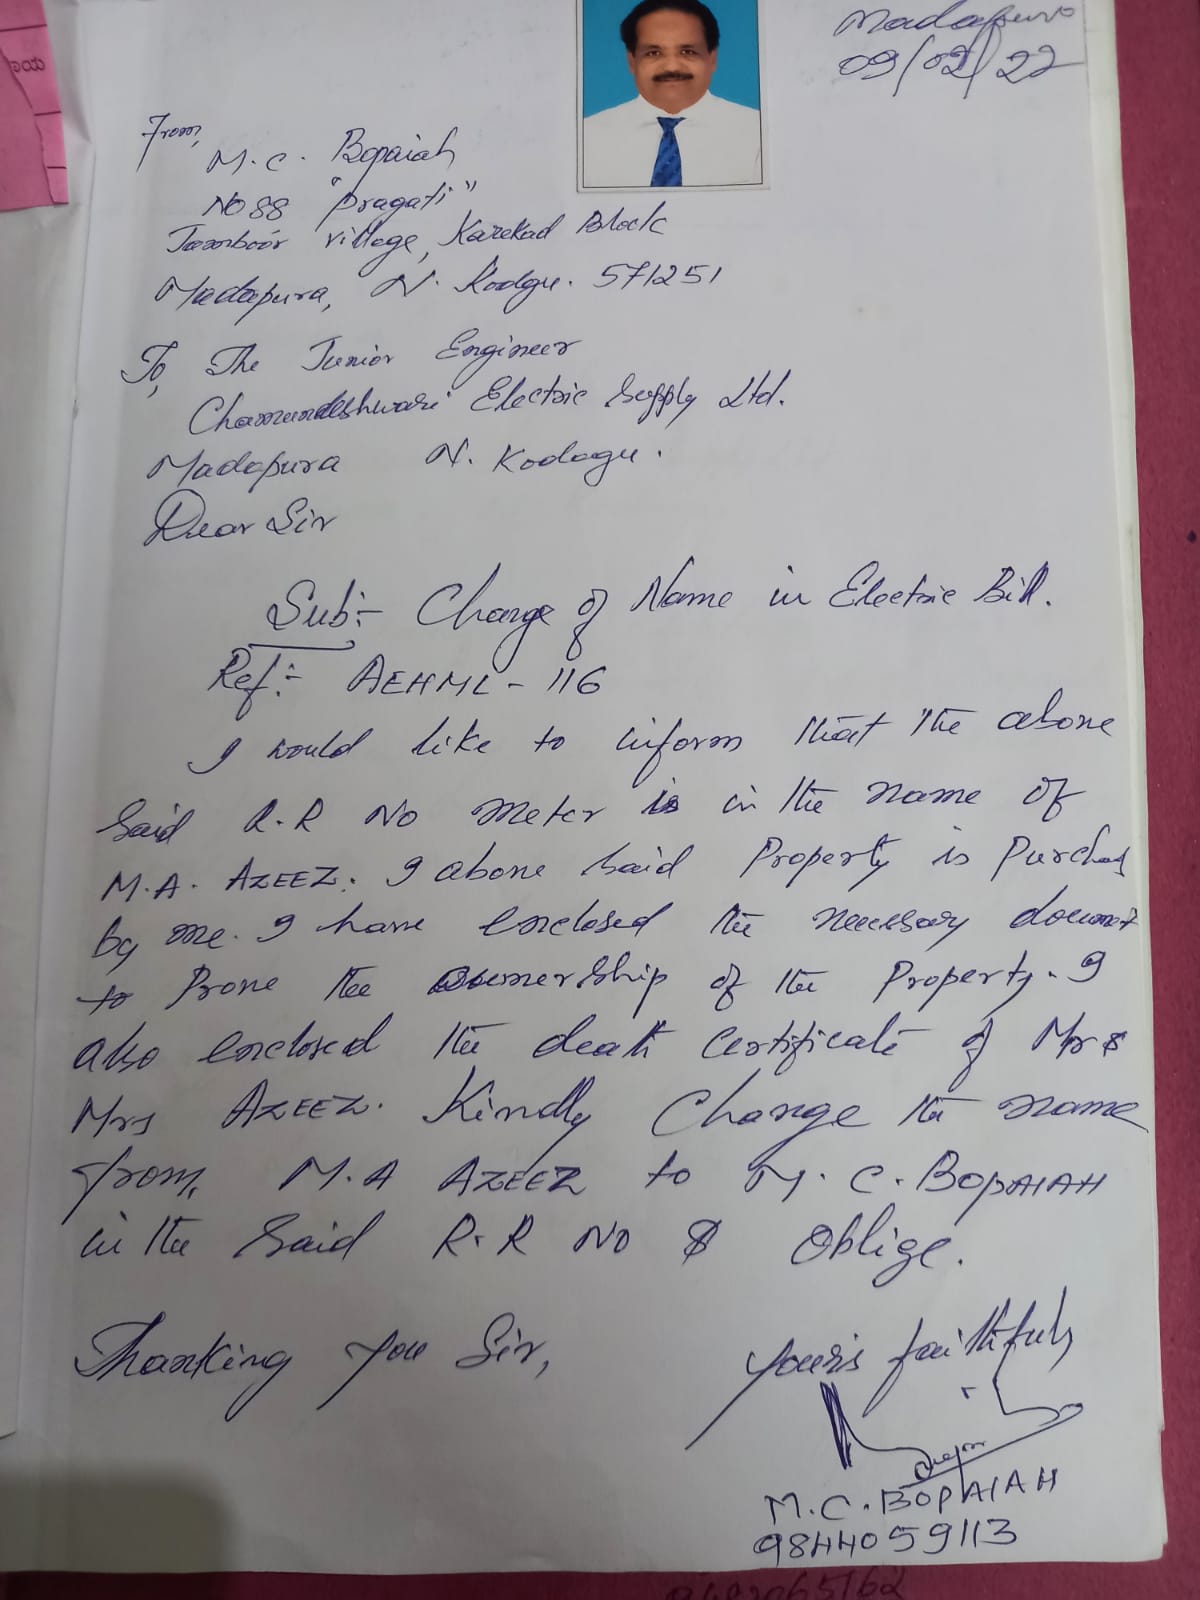 Madapura
09/02/22
From,
M.C. Bopaiah
NO 88 "Pragati"
Jamboor village, Karekad Block
Madapura, N. Kodgu. 571251
To, The Junior Engineer
Chamundeshwari Electric Supply Ltd.
Madapura N. Kodagu.
Dear Sir
Sub:- Change of Name in Electric Bill.
Ref:- AEHML - 116
I would like to inform that the above
Said R.R No meter is in the name of
M.A. AZEEZ. I above said Property is Purchas
by me. I have enclosed the necessary document
to Prove the ownership of the Property. I
also enclosed the death certificate of Mr &
Mrs AZEEZ. Kindly Change the name
from, M.A AZEEZ to M.C. BOPAIAH
in the Said R.R NO & Oblige.
Thanking you Sir,
Yours faithfully
M.C. BOPAIAH
9844059113